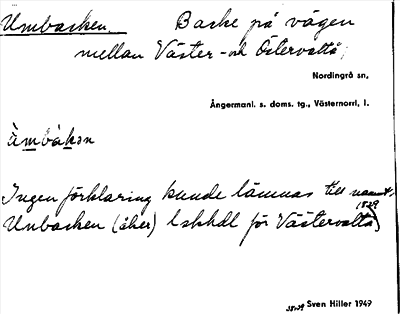 Umbacken. Backe på vägen
mellan Väster- och Östervattå,
Nordingrå sn,
Ångermanl. s. doms. tg., Västernorrl. l.
Ingen förklaring kunde lämnas till namnet.
1829
Umbacken (åker) lskhdl för Västervattå)
Sven Hiller 1949